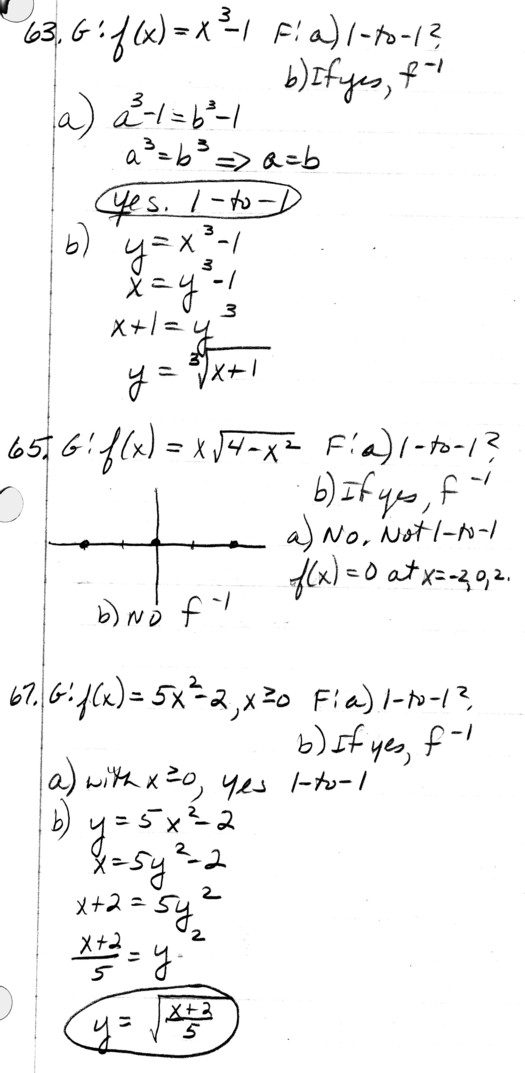 63. G: f(x) = x³-1 F: a) 1-to-1?
b) If yes, f⁻¹
a) a³-1 = b³-1
a³ = b³ => a = b
yes. 1-to-1
b) y = x³-1
x = y³-1
x+1 = y³
y = ∛(x+1)
65. G: f(x) = x√(4-x²) F: a) 1-to-1?
b) If yes, f⁻¹
a) No. Not 1-to-1
f(x) = 0 at x = -2, 0, 2.
b) NO f⁻¹
67. G: f(x) = 5x²-2, x≥0 F: a) 1-to-1?
b) If yes, f⁻¹
a) with x≥0, yes 1-to-1
b) y = 5x²-2
x = 5y²-2
x+2 = 5y²
(x+2)/5 = y²
y = √((x+2)/5)